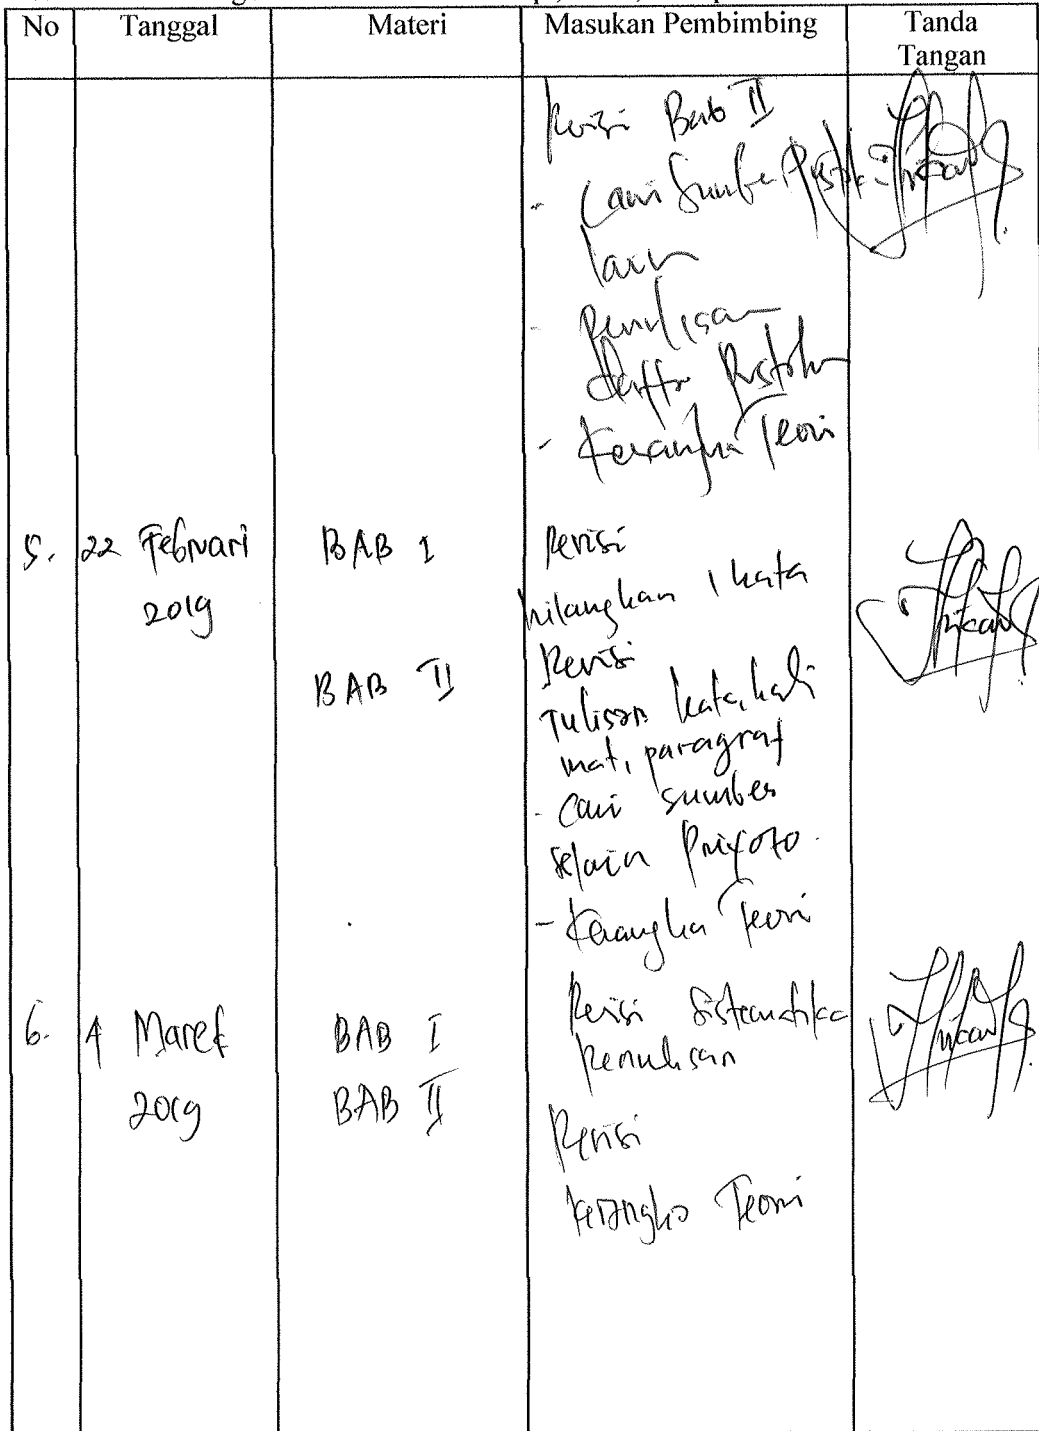 No Tanggal Materi Masukan Pembimbing Tanda Tangan
Revisi Bab II
- Cari Sumber Pustaka
lain
- Penulisan
daftar Pustaka
- Kerangka Teori
5. 22 Februari 2019 BAB I Revisi
hilangkan 1 kata
BAB II Revisi
Tulisan kata, kali
mat, paragraf
- Cari sumber
selain Priyoto.
- Kerangka Teori
6. 4 Maret 2019 BAB I Revisi Sistematika
Penulisan
BAB II Revisi
Kerangka Teori